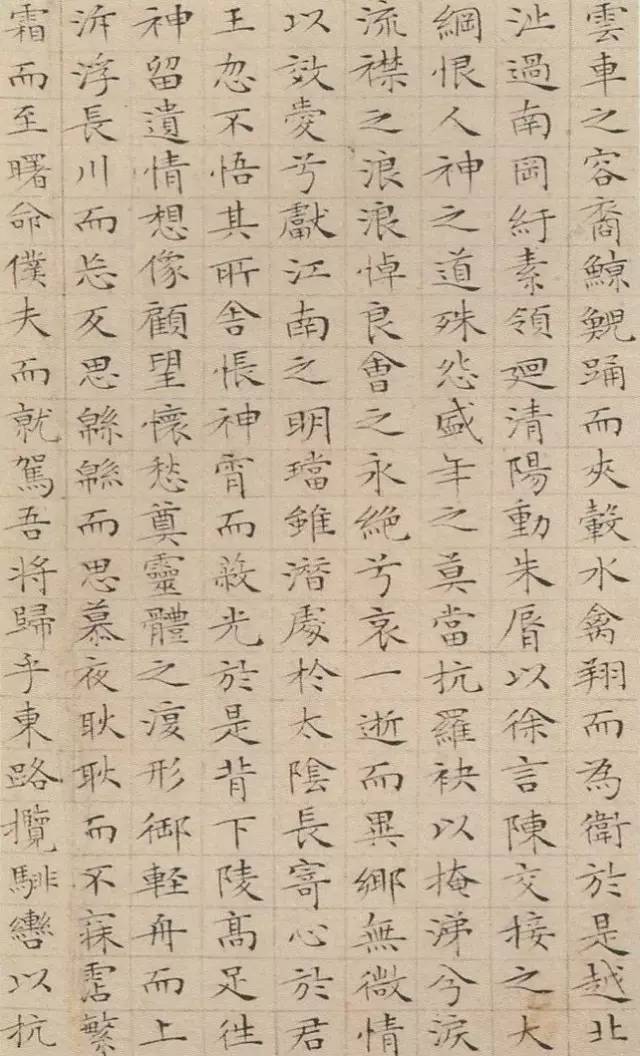 雲車之容裔鯨鯢踊而夾轂水禽翔而為衛於是越北
沚過南岡紆素領廻清陽動朱脣以徐言陳交接之大
綱恨人神之道殊怨盛年之莫當抗羅袂以掩涕兮淚
流襟之浪浪悼良會之永絶兮哀一逝而異鄉無微情
以效愛兮獻江南之明璫雖潛處於太陰長寄心於君
王忽不悟其所舍悵神宵而蔽光於是背下陵高足往
神留遺情想像顧望懷愁奠靈體之復形御軽舟而上
泝浮長川而忘反思緜緜而思慕夜耿耿而不寐霑繁
霜而至曙命僕夫而就駕吾將歸乎東路攬騑轡以抗